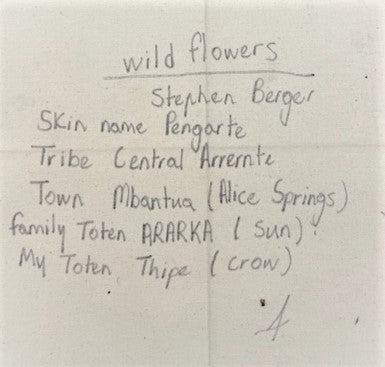 wild flowers
Stephen Berger
Skin name Pengarte
Tribe Central Arrernte
Town Mbantua (Alice Springs)
family Toten ARARKA (Sun)
My Toten Thipe (crow)